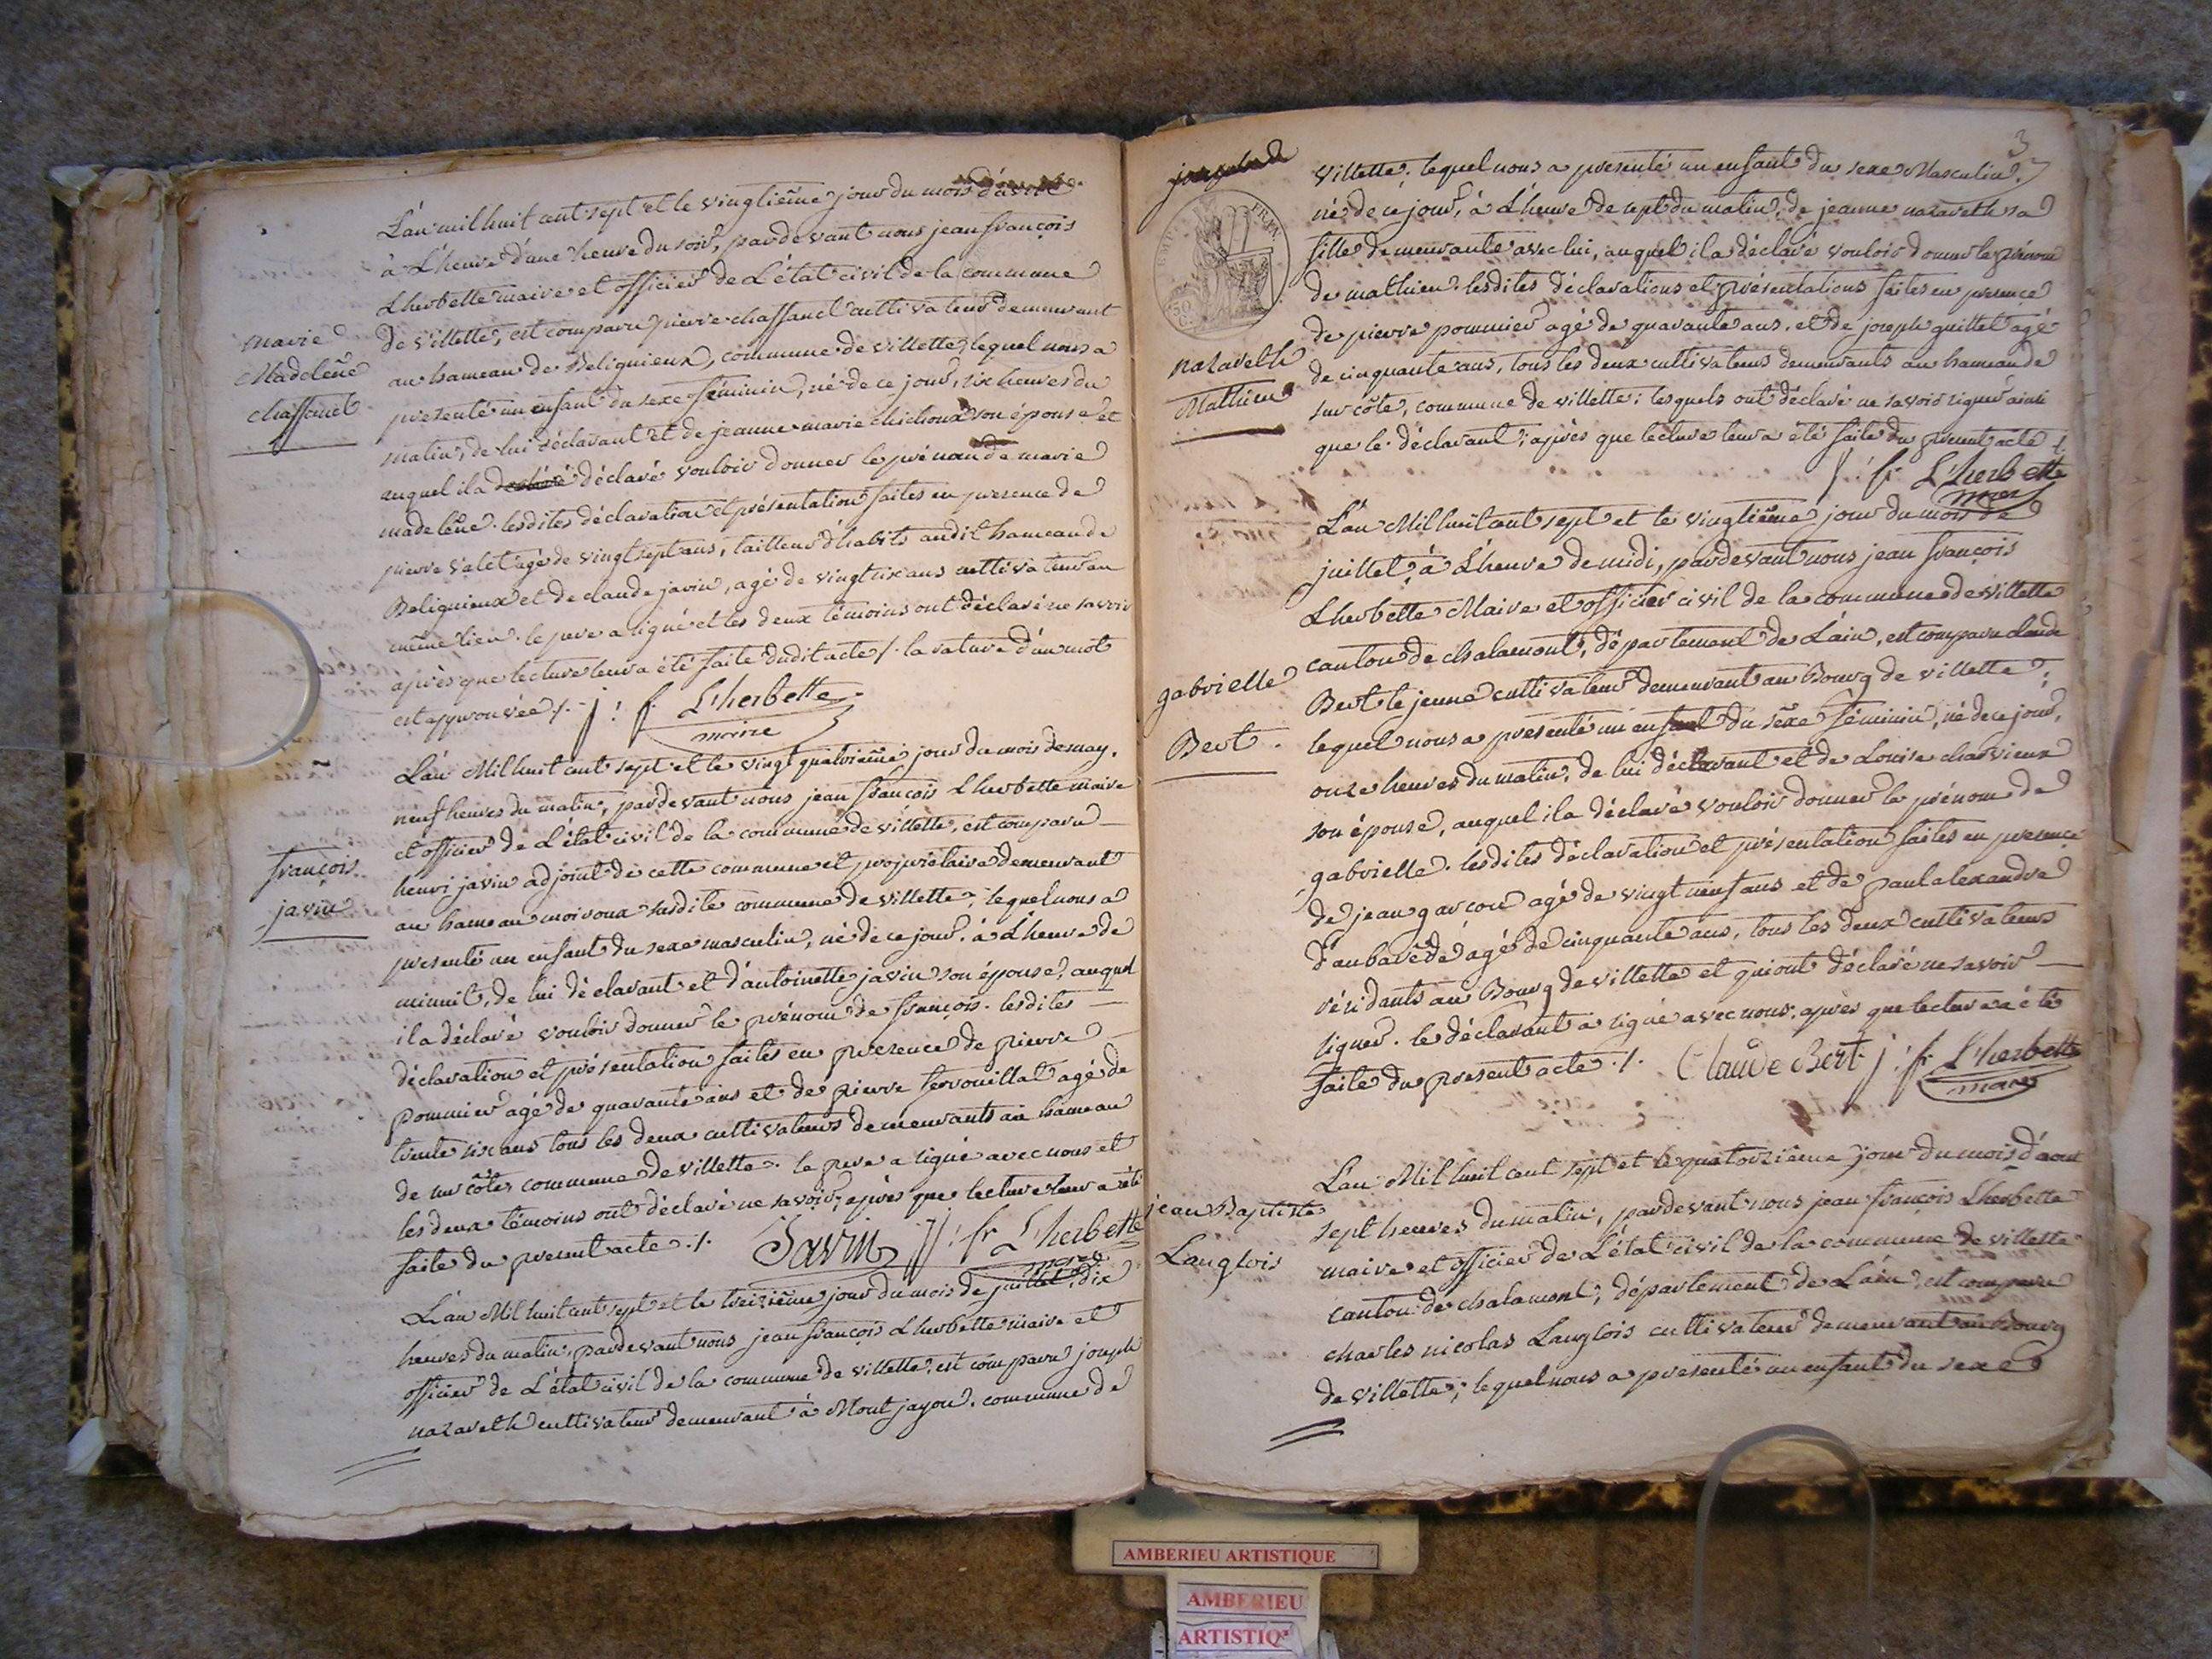 L'an mil huit cent sept et le vingtiême jour du mois d'avril
à L'heure d'une heure du soir, pardevant nous jean françois
Lherbette maire et officier de L'état civil de la commune
de villette, est comparu pierre chaffanel cultivateur demeurant
au hameau de Beligneux, commune de villette, lequel nous a
presenté un enfant du sexe féminin, né de ce jour, six heures du
matin, de lui déclarant et de jeanne marie chichoux son épouse et
auquel il a déclaré vouloir donner le prénom de marie
madelêne. lesdites déclaration et présentation faites en presence de
pierre valet agé de vingt sept ans, tailleur d'habits audit hameau de
Beligneux et de claude javin, agé de vingt six ans cultivateur au
même lieu. le pere a signé et les deux témoins ont déclaré ne savoir
après que lecture leur a été faite dudit acte /. la rature d'un mot
est approuvée /.
j: f. L'herbette
maire
marie
Madelêne
chaffanel
L'an Mil huit cent sept et le vingt quatriême jour du mois de may,
neuf heures du matin, pardevant nous jean françois Lherbette maire
et officier de L'état civil de la commune de villette, est comparu
henri javin adjoint de cette commune et propriétaire demeurant
au hameau moiroux susdite commune de villette; lequel nous a
presenté un enfant du sexe masculin, né de ce jour, à L'heure de
minuit, de lui déclarant et d'antoinette javin son épouse, auquel
il a déclaré vouloir donner le prénom de françois. lesdites
déclaration et présentation faites en presence de pierre
pommier agé de quarante ans et de pierre servouillat agé de
trente six ans tous les deux cultivateurs demeurants au hameau
de sur côte, commune de villette. le pere a signé avec nous et
les deux témoins ont déclaré ne savoir; après que lecture leur a été
faite du present acte ./.
Javin j: fr L'herbette
maire
françois
javin
L'an Mil huit cent sept et le treiziême jour du mois de juillet, dix
heures du matin, pardevant nous jean françois Lherbette maire et
officier de L'état civil de la commune de villette, est comparu joseph
nazareth cultivateur demeurant à Mont jayon, commune de
3
EMP. FRAN.
50
C.
villette; lequel nous a presenté un enfant du sexe Masculin,
né de ce jour, à L'heure de sept du matin, de jeanne nazareth sa
fille demeurante avec lui, auquel il a déclaré vouloir donner le prénom
de mathieu. lesdites déclarations et présentations faites en presence
de pierre pommier agé de quarante ans, et de joseph guillet agé
de cinquante ans, tous les deux cultivateurs demeurants au hameau de
sur côte, commune de villette; lesquels ont déclaré ne savoir signer ainsi
que le déclarant; après que lecture leur a été faite du present acte /.
j: fr L'herbette
maire
nazareth
Mathieu
L'an Mil huit cent sept et le vingtiême jour du mois de
juillet, à L'heure de midi, pardevant nous jean françois
Lherbette Maire et officier civil de la commune de villette
canton de chalamont, département de L'ain, est comparu claude
Bert le jeune cultivateur demeurant au Bourg de villette;
lequel nous a presenté un enfant du sexe féminin, né de ce jour,
onze heures du matin, de lui déclarant et de Louise charvieux
son épouse, auquel il a déclaré vouloir donner le prénom de
gabrielle. lesdites déclaration et présentation faites en presence
de jean garçon agé de vingt neuf ans et de paul alexandre
d'aubarêde agé de cinquante ans, tous les deux cultivateurs
résidants au Bourg de villette et qui ont déclaré ne savoir
signer. le déclarant a signé avec nous, après que lecture a été
faite du present acte ./.
Claude Bert j: fr L'herbette
maire
gabrielle
Bert.
L'an Mil huit cent sept et le quatorziême jour du mois d'aout
sept heures du matin, pardevant nous jean françois Lherbette
maire et officier de L'état civil de la commune de villette
canton de chalamont, département de L'ain, est comparu
charles nicolas Langlois cultivateur demeurant au Bourg
de villette; lequel nous a presenté un enfant du sexe
jean Baptiste
Langlois
AMBERIEU ARTISTIQUE
AMBERIEU
ARTISTIQ